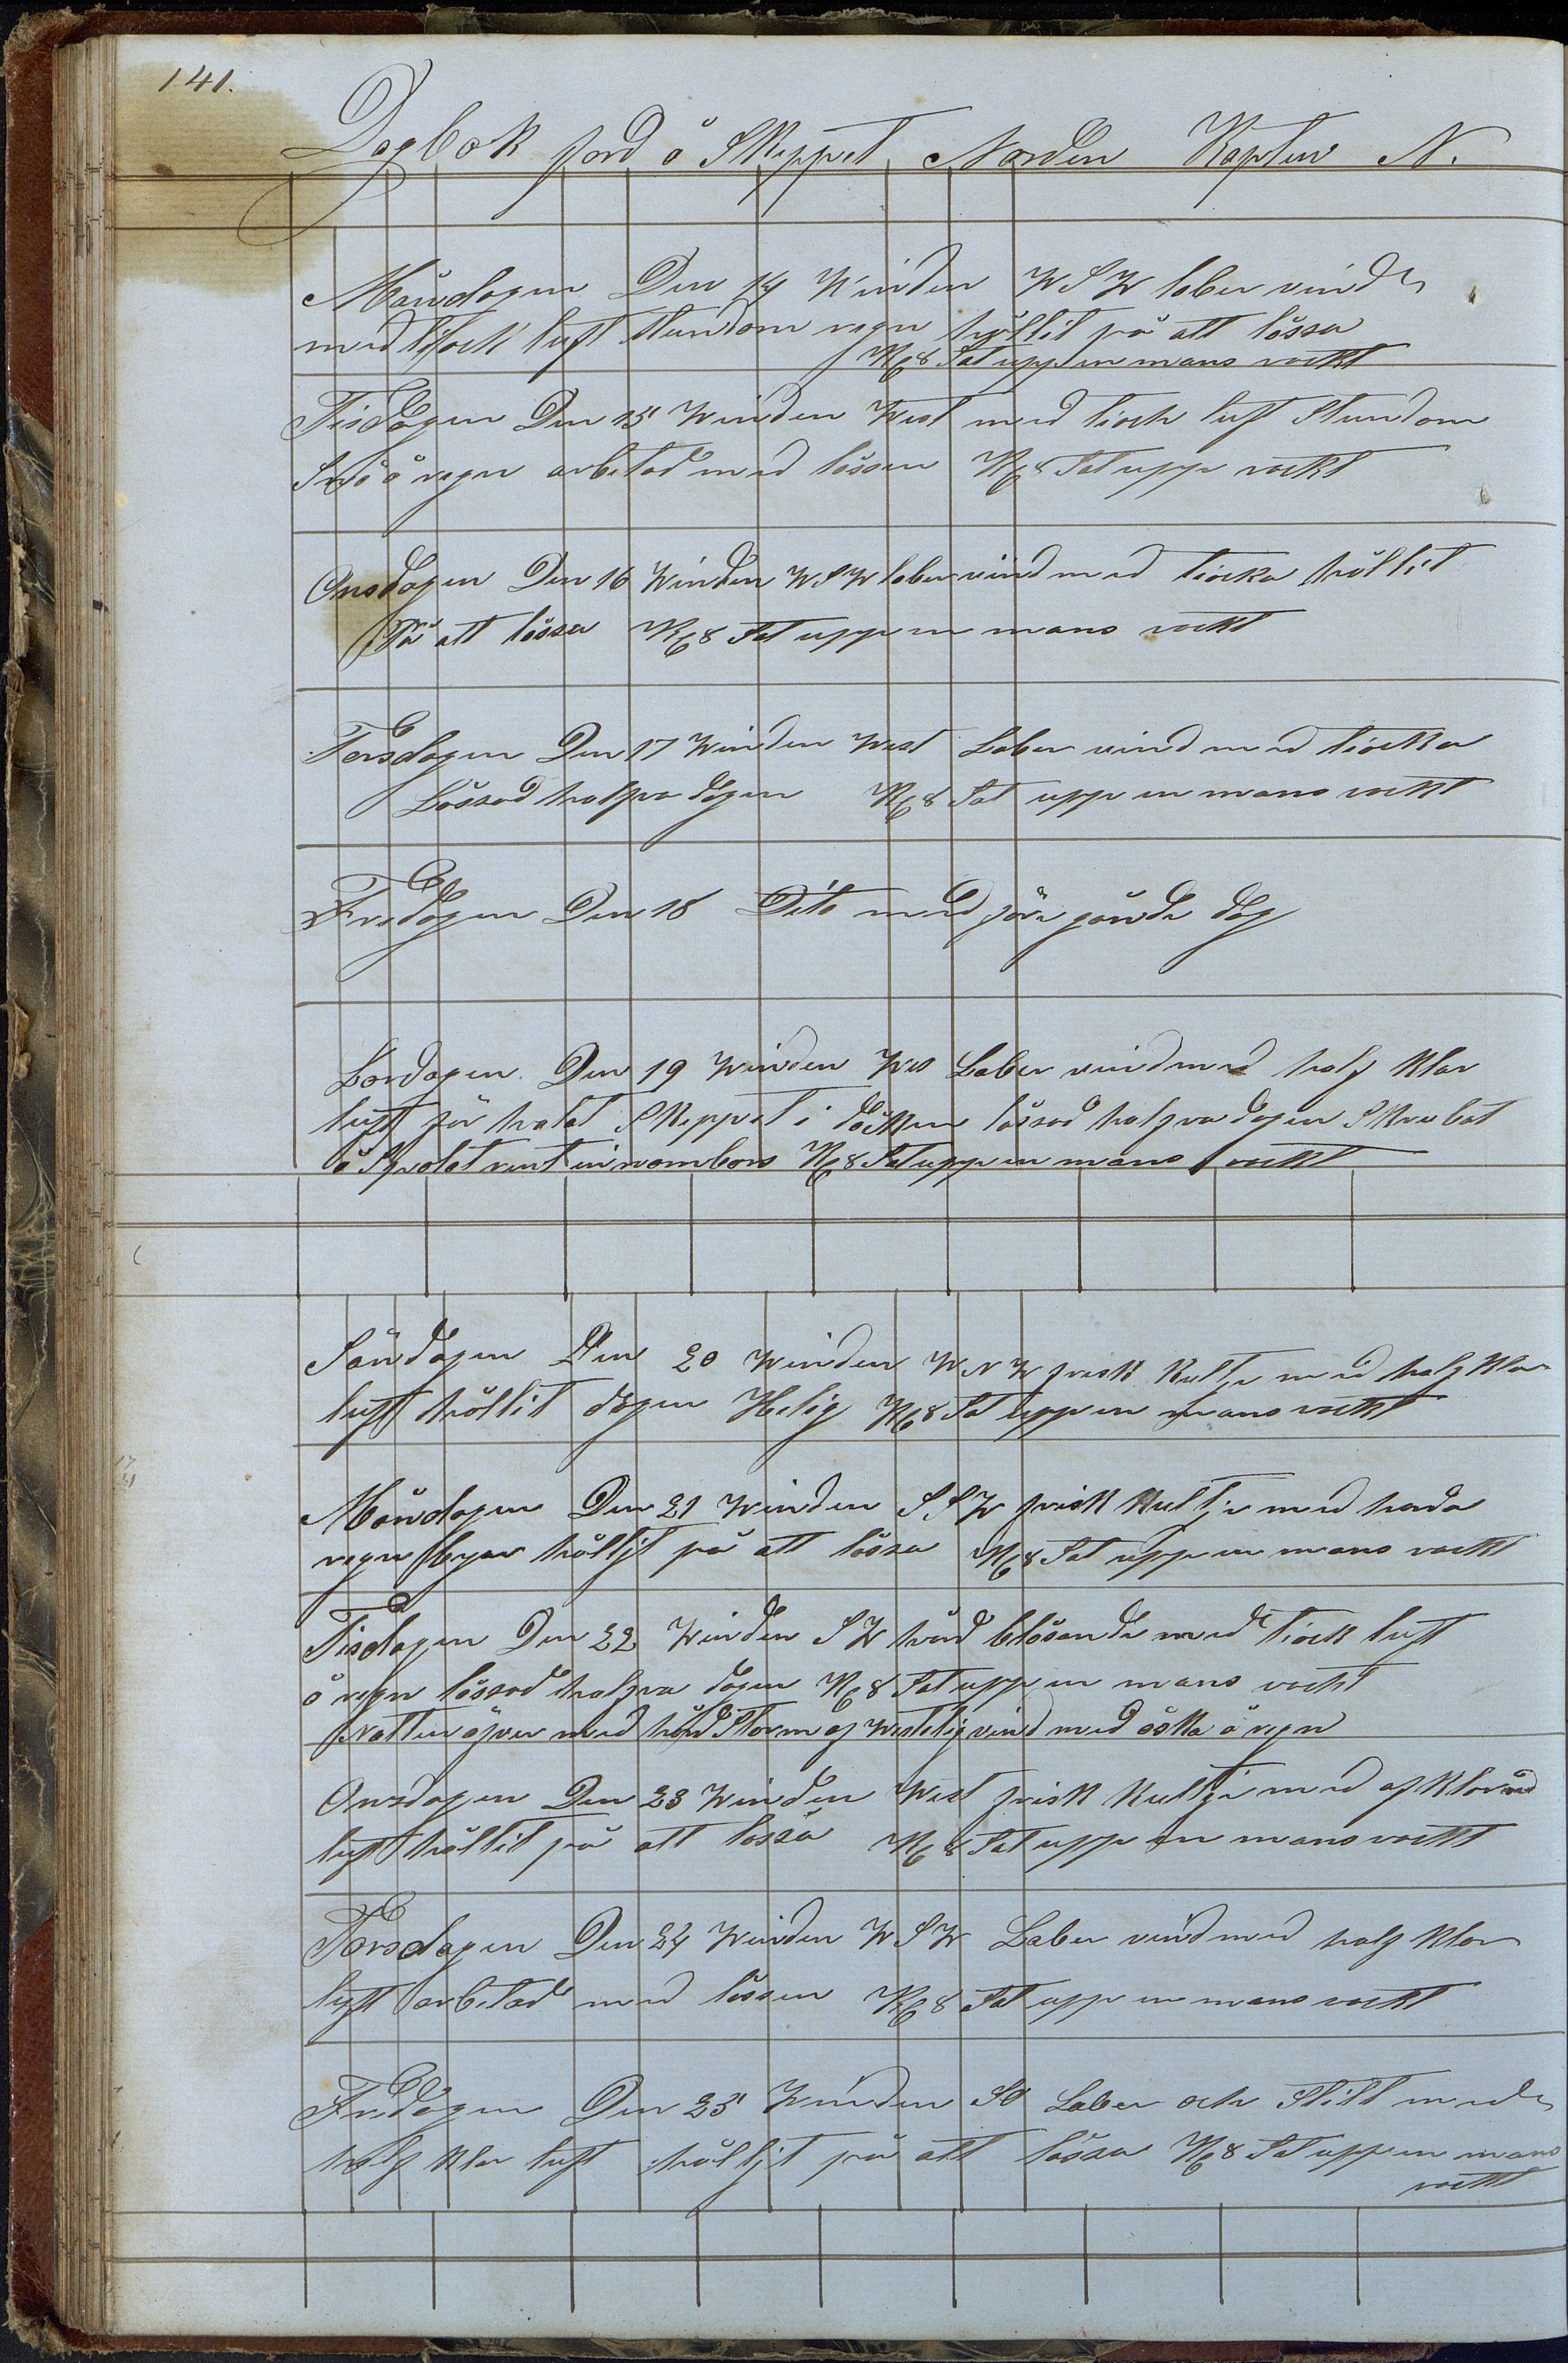 141.
Dagbok förd å Skeppet Norden Kapten N.
Måndagen Den 14 Winden WSW laber vind
med tjock luft stundom regn hållit på att lossa
Kl 8 Sat upp en mans vackt
Tisdagen Den 15 Winden West med tiock luft Stundom
Snö å regn arbetad med lossen Kl 8 Sat upp vackt
Onsdagen Den 16 Winden WSW laber vind med tiocka hållit
På att lossa Kl 8 Sat upp en mans vackt
Torsdagen Den 17 Winden West Laber vind med tiocka
Lossad halfva dagen Kl 8 Sat upp en mans vackt
Fredagen Den 18 Dito med före gånde dag
Lördagen Den 19 Winden Wes Laber vind med half Klar
luft för halat Skeppet i dåckan lossad halfva dagen Skrubat
å Spolat rent innombors Kl 8 Sat upp en mans vackt
Söndagen Den 20 Winden WNW frisk Kultje med half Klar
luft hållit dagen Helig Kl 8 Sat upp en mans vackt
Måndagen Den 21 Winden SSW frisk Kultje med hårda
regn byar hålljt på att lossa Kl 8 Sat upp en mans vackt
Tisdagen Den 22 Winden SW hård blåsande med tiock luft
å regn lossad halfva dagen Kl 8 Sat upp en mans vackt
Natten öfver med hård Storm af Westelig vind med åska å regn
Onsdagen Den 23 Winden West frisk Kultje med af Klarad
luft hållit på att lossa Kl 8 Sat upp en mans vackt
Torsdagen Den 24 Winden WSW Laber vind med half Klar
luft arbetad med lossen Kl 8 Sat upp en mans vackt
Fredagen Den 25 Winden SO Laber och Stilt med
half Klar luft hålljt på att lossa Kl 8 Sat upp en mans
vackt